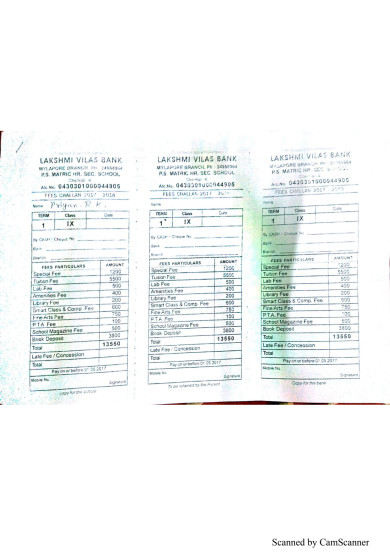 LAKSHMI VILAS BANK
MYLAPORE BRANCH, Ph : 24988964
P.S. MATRIC HR. SEC. SCHOOL
Chennai - 4
A/c.No. 0430301000044905
FEES CHALLAN 2017 - 2018
Name : Priyan R.K.
TERM Class Date
1 IX
By CASH / Cheque No.
Bank
Branch
FEES PARTICULARS AMOUNT
Special Fee 1200
Tuition Fee 5500
Lab Fee 500
Amenities Fee 400
Library Fee 200
Smart Class & Comp. Fee 600
Fine Arts Fee 750
P.T.A. Fee 100
School Magazine Fee 500
Book Deposit 3800
Total 13550
Late Fee / Concession
Total
Pay on or before 01.05.2017
Mobile No. Signature
Copy for the school
LAKSHMI VILAS BANK
MYLAPORE BRANCH, Ph : 24988964
P.S. MATRIC HR. SEC. SCHOOL
Chennai - 4
A/c.No. 0430301000044905
FEES CHALLAN 2017
Name
TERM Class Date
1 IX
By CASH / Cheque No.
Bank
Branch
FEES PARTICULARS AMOUNT
Special Fee 1200
Tuition Fee 5500
Lab Fee 500
Amenities Fee 400
Library Fee 200
Smart Class & Comp. Fee 600
Fine Arts Fee 750
P.T.A. Fee 100
School Magazine Fee 500
Book Deposit 3800
Total 13550
Late Fee / Concession
Total
Pay on or before 01.05.2017
Mobile No. Signature
To be retained by the
LAKSHMI VILAS BANK
MYLAPORE BRANCH, Ph : 24988964
P.S. MATRIC HR. SEC. SCHOOL
Chennai - 4
A/c.No. 0430301000044905
FEES CHALLAN 2017 - 2018
Name
TERM Class Date
1 IX
By CASH / Cheque No.
Bank
Branch
FEES PARTICULARS AMOUNT
Special Fee 1200
Tuition Fee 5500
Lab Fee 500
Amenities Fee 400
Library Fee 200
Smart Class & Comp. Fee 600
Fine Arts Fee 750
P.T.A. Fee 100
School Magazine Fee 500
Book Deposit 3800
Total 13550
Late Fee / Concession
Total
Pay on or before 01.05.2017
Mobile No. Signature
Copy for the bank
Scanned by CamScanner